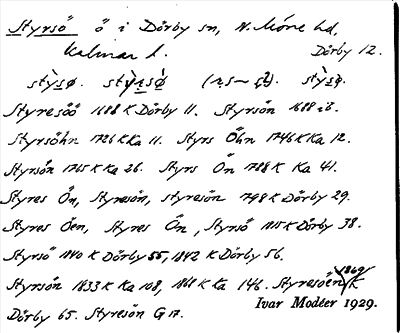 Styrsö ö i Dörby sn, N. Möre hd,
Kalmar l. Dörby 12.
Styresöö 1688 K Dörby 11. Styrsön 1688 ib.
Styrsöhn 1726 K Ka 11. Styrs Öhn 1746 K Ka 12.
Styrsön 1765 K Ka 26. Styrs Ön 1788 K Ka 41.
Styres Ön, Styresön, styresön 1798 K Dörby 29.
Styres Öen, Styres Ön, Styrsö 1815 K Dörby 38.
Styrsö 1840 K Dörby 55, 1842 K Dörby 56.
Styrsön 1833 K Ka 108, 1868 K Ka 146. Styresöen 1869 K
Ivar Modéer 1929.
Dörby 65. Styresön G 17.